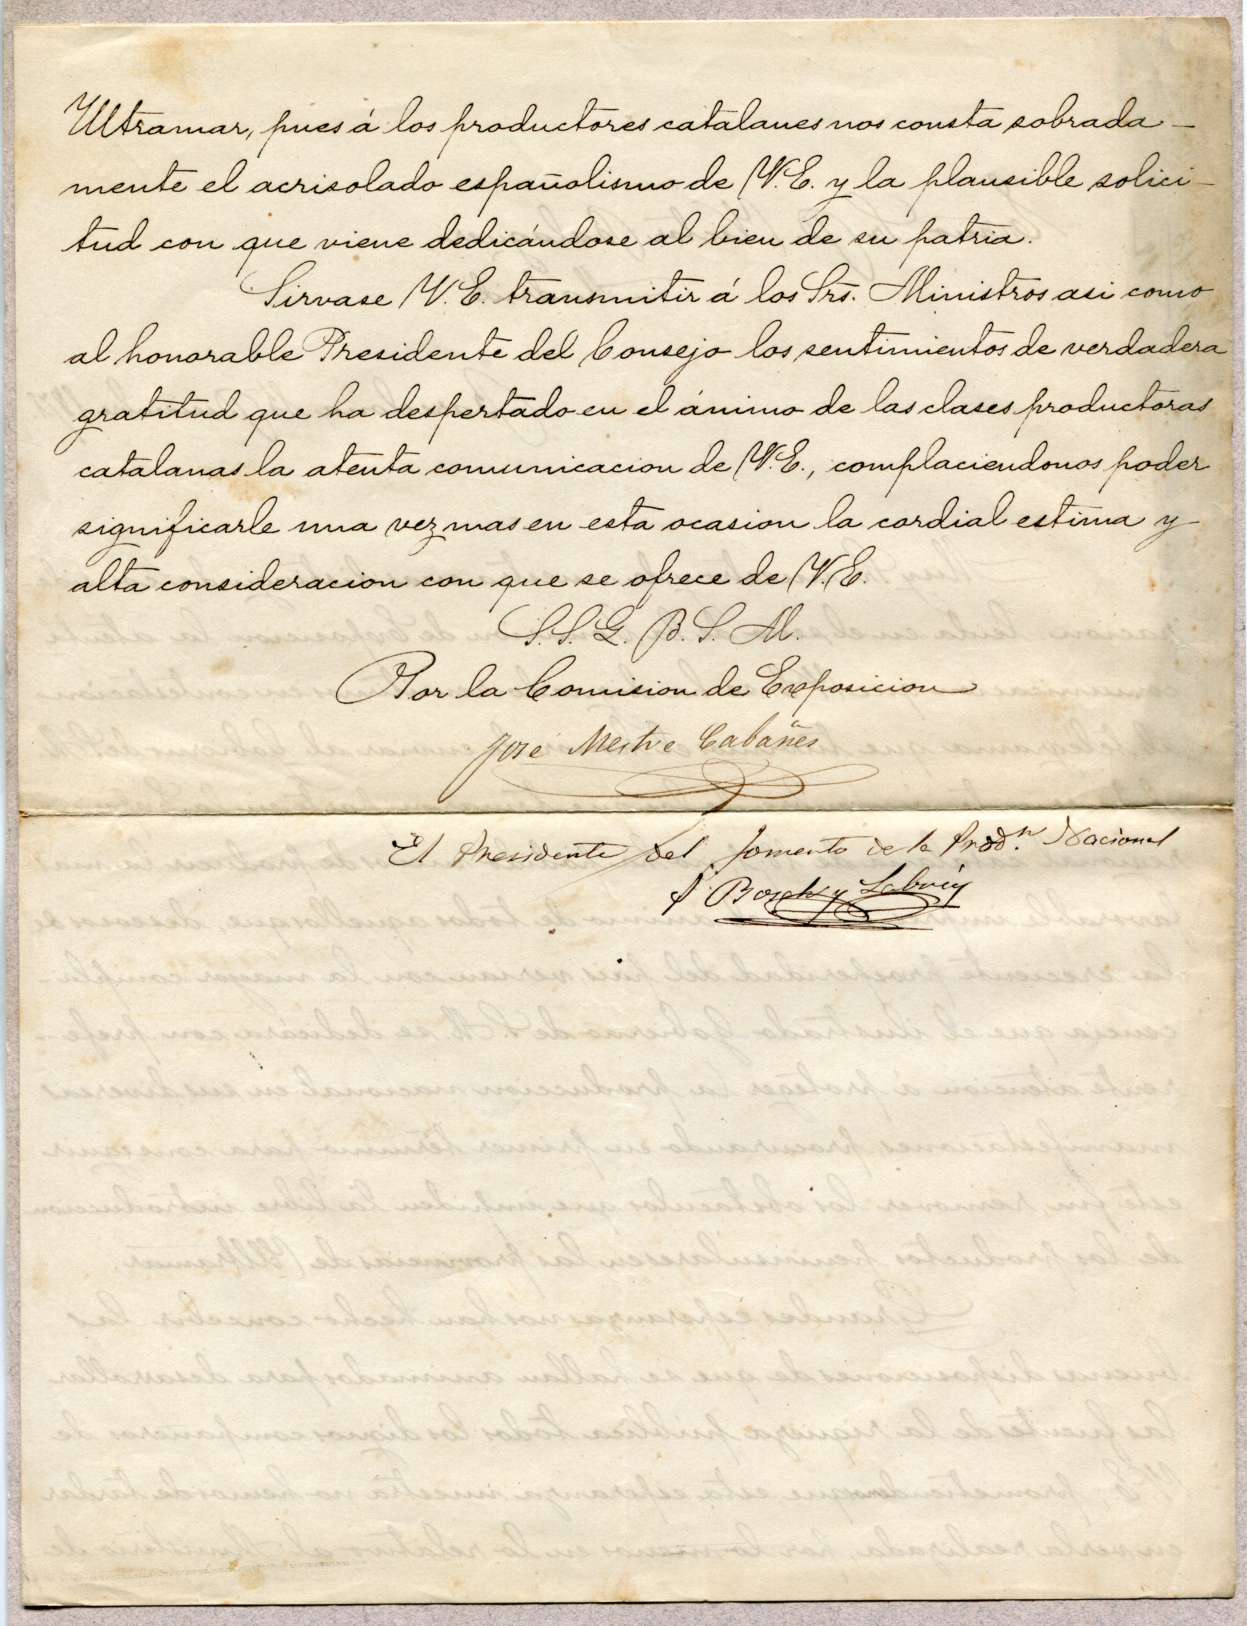 Ultramar, pues á los productores catalanes nos consta sobrada-
mente el acrisolado españolismo de V.E. y la plausible solici-
tud con que viene dedicándose al bien de su patria.
Sirvase V.E. transmitir á los Srs. Ministros asi como
al honorable Presidente del Consejo los sentimientos de verdadera
gratitud que ha despertado en el ánimo de las clases productoras
catalanas la atenta comunicacion de V.E., complaciendonos poder
significarle una vez mas en esta ocasion la cordial estima y
alta consideracion con que se ofrece de V.E.
S.S.Q. B.S.M.
Por la Comision de Exposicion
José Mestre Cabañes
El Presidente del fomento de la Prodn. Nacional
P. Bosch y Labrús